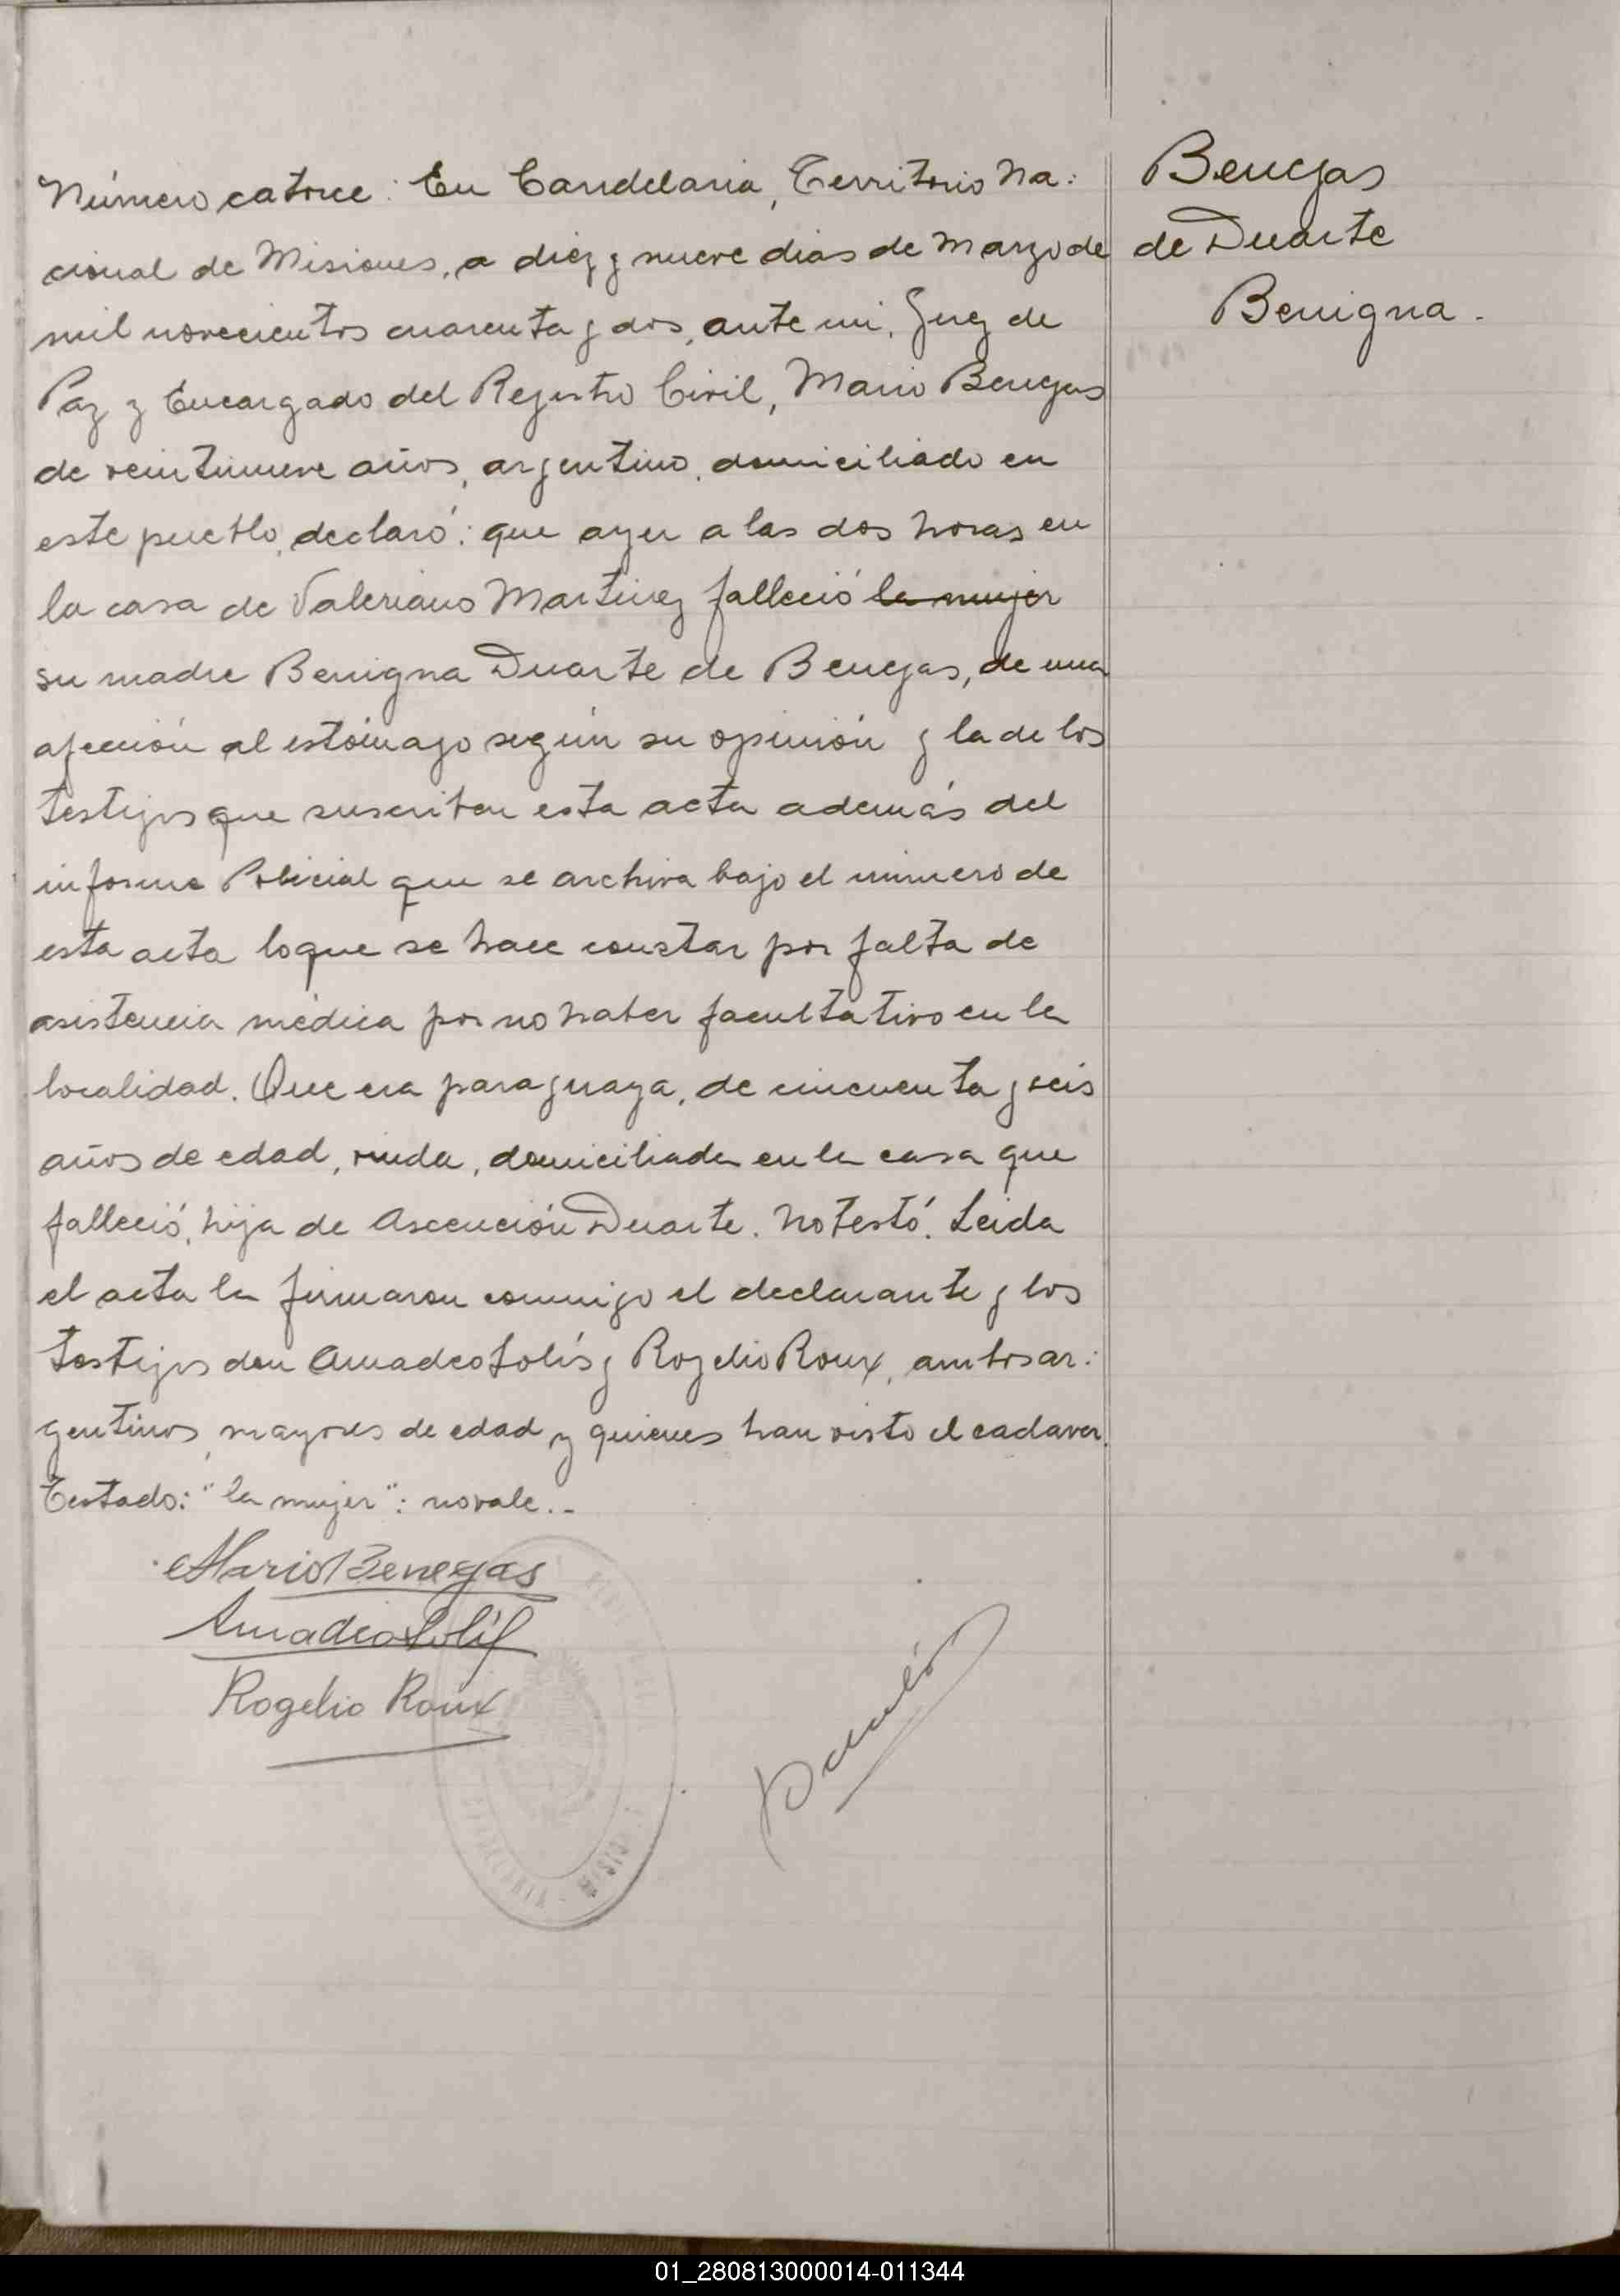 Número catorce: En Candelaria, Territorio Na:
cional de Misiones, a diez y nueve dias de Marzo de
mil novecientos cuarenta y dos, ante mi, Juez de
Paz y Encargado del Registro Civil, Mario Benegas
de veintinueve años, argentino, domiciliado en
este pueblo, declaró: que ayer a las dos horas en
la casa de Valeriano Martinez falleció la mujer
su madre Benigna Duarte de Benegas, de una
afección al estómago según su opinión y la de los
testigos que suscriben esta acta además del
informe Policial que se archiva bajo el número de
esta acta lo que se hace constar por falta de
asistencia médica por no haber facultativo en la
localidad. Que era paraguaya, de cincuenta y seis
años de edad, viuda, domiciliada en la casa que
falleció, hija de Ascención Duarte. No testó. Leida
el acta la firmaron conmigo el declarante y los
testigos don Amadeo Solís y Rogelio Roux, ambos ar:
gentinos, mayores de edad y quienes han visto el cadaver.
Testado: "la mujer": no vale..-
Mario Benegas
Amadeo Solís
Rogelio Roux
Benegas
de Duarte
Benigna.
01_280813000014-011344